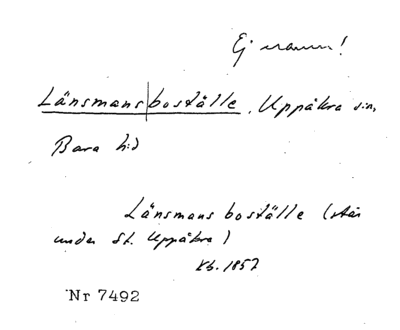 Ej namn!
Länsmans|boställe, Uppåkra sn,
Bara hd
Länsmans boställe (står
under St. Uppåkra)
Kb. 1857
Nr 7492